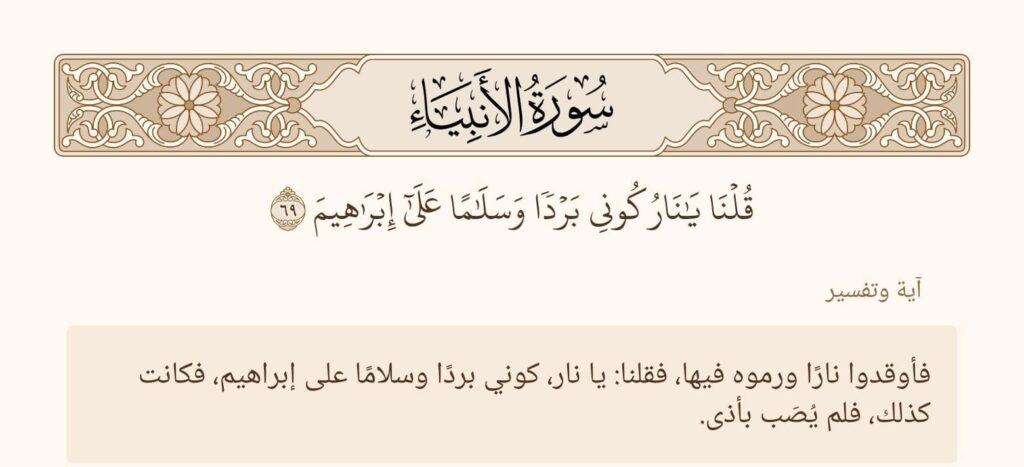 سُورَةُ الأَنبِيَاءِ
قُلۡنَا يَٰنَارُ كُونِي بَرۡدٗا وَسَلَٰمًا عَلَىٰٓ إِبۡرَٰهِيمَ ٦٩
آية وتفسير
فأوقدوا نارًا ورموه فيها، فقلنا: يا نار، كوني بردًا وسلامًا على إبراهيم، فكانت
كذلك، فلم يُصَب بأذى.